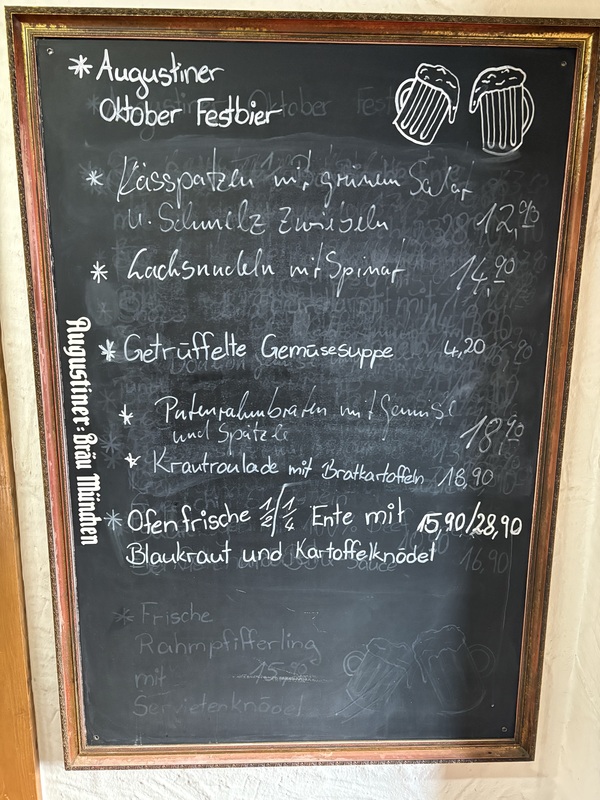 * Augustiner
Oktober Festbier
* Kässpatzen mit grünem Salat
u. Schmelz Zwiebeln 12,90
* Lachsnudeln mit Spinat 14,90
* Getrüffelte Gemüsesuppe 4,20
* Putenrahmbraten mit Gemüse
und Spätzle 18,90
* Krautroulade mit Bratkartoffeln 18,90
* Ofenfrische 1/2 / 1/4 Ente mit 15,90/28,90
Blaukraut und Kartoffelknödel
* Frische
Rahmpfifferling
mit 15,90
Servietenknödel
Augustiner-Bräu München